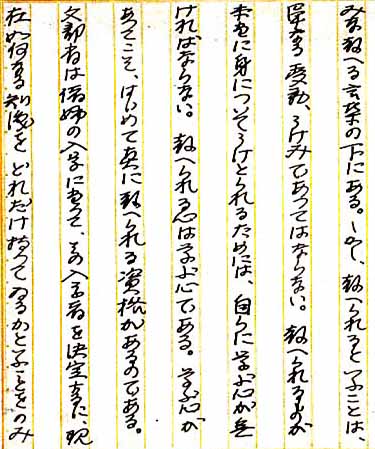 み教へる言葉の下にある。しかし、教へられると云ふことは、
単なる受動、うけみであつてはならない。教へられるものが
本当に身についてうけとられるためには、自らに学ぶ心が無
ければならない。教へられる心は学ぶ心である。学ぶ心が
あつてこそ、はじめて真に教へられる資格があるのである。
文部省は 入学に当つて、その入学者を決定するに、現
在如何なる知識をどれだけ持つてゐるかと云ふことをのみ